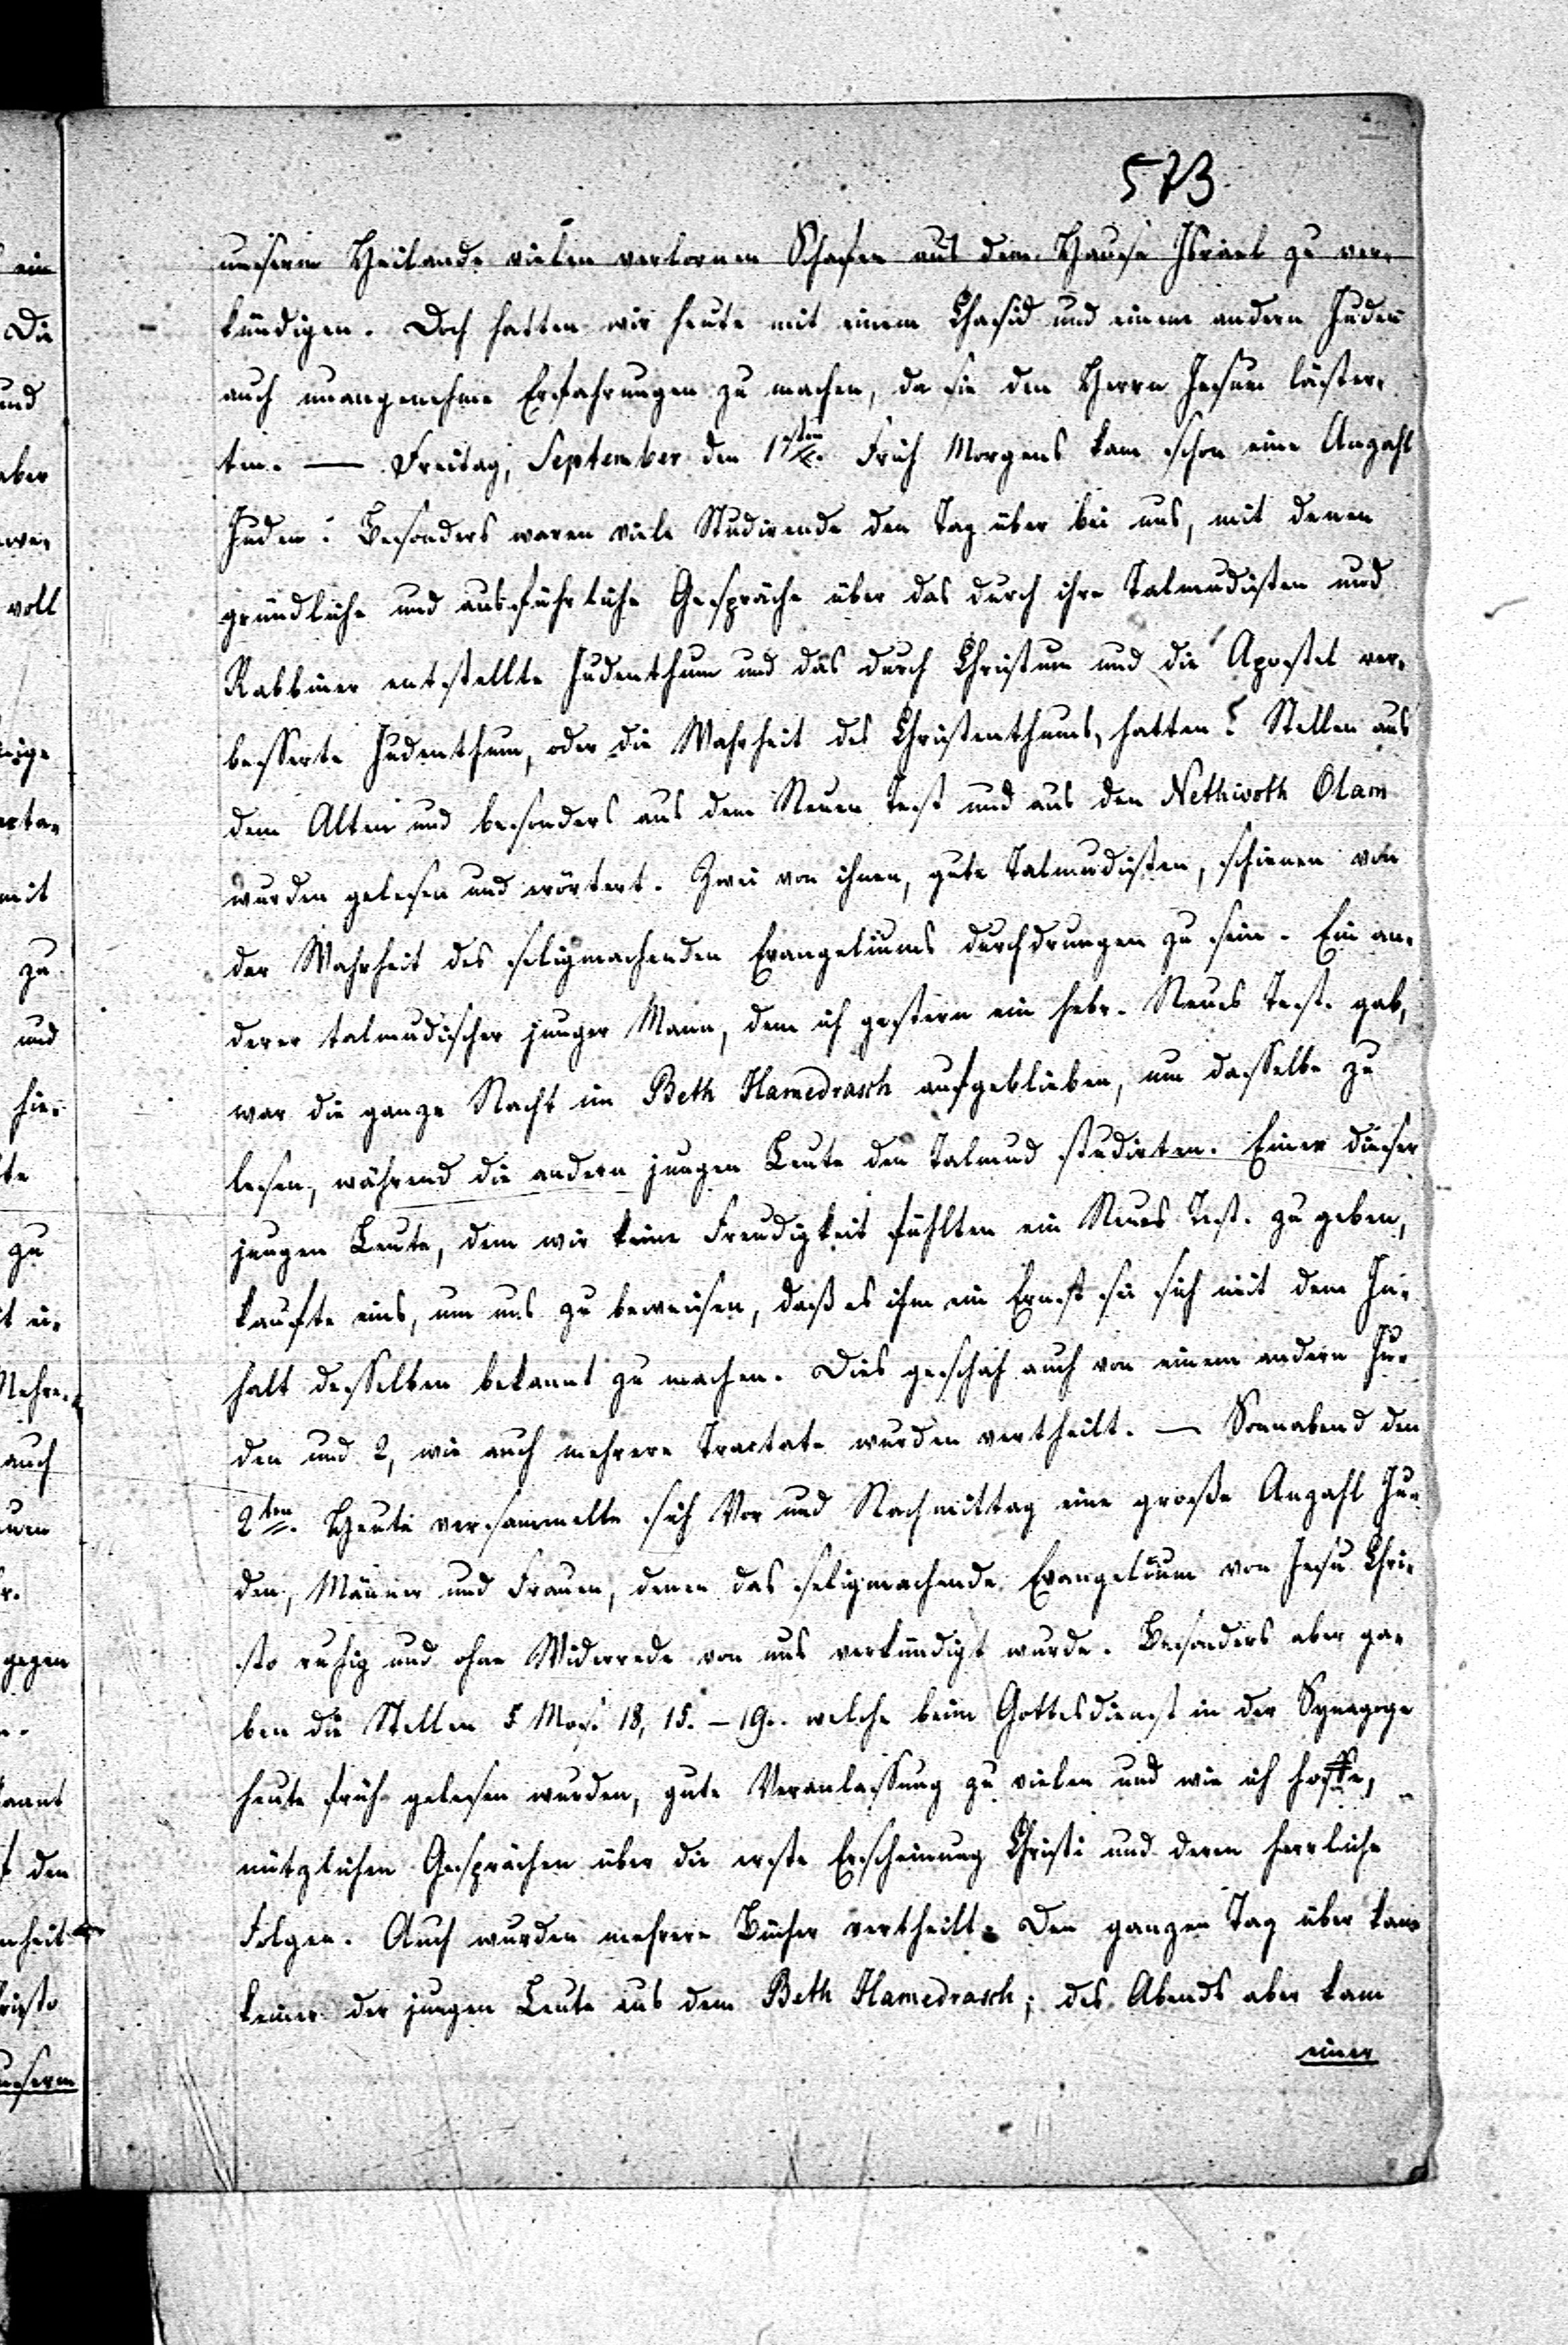 573
unserm Heilande vielen verlornen Schafen aus dem Hause Israel zu ver-
kündigen. Doch hatten wir heute mit einem Chasid und einem andern Juden
auch unangenehme Erfahrungen zu machen, da sie den Herrn Jesum läster-
ten. — Freitag, September den 1sten. Früh Morgens kam schon eine Anzahl
Juden: Besonders waren viele Studirende den Tag über bei uns, mit denen
gründliche und ausführliche Gespräche über das durch ihre Talmudisten und
Rabbiner entstellte Judenthum und das durch Christum und die Apostel ver-
besserte Judenthum, oder die Wahrheit des Christenthums, hatten. Stellen aus
dem Alten und besonders aus dem Neuen Test und aus den Nethiwoth Olam
wurden gelesen und erörtert. Zwei von ihnen, gute Talmudisten, schienen von
der Wahrheit des seligmachenden Evangeliums durchdrungen zu sein. Ein an-
derer talmudischer junger Mann, dem ich gestern ein hebr. Neues Test. gab,
war die ganze Nacht im Beth Hamedrasch aufgeblieben, um dasselbe zu
lesen, während die andern jungen Leute den Talmud studirten. Einer dieser
jungen Leute, dem wir keine Freudigkeit fühlten ein Neues Test. zu geben,
kaufte eins, um uns zu beweisen, daß es ihm ein Ernst sei sich mit dem In-
halt desselben bekannt zu machen. Dies geschah auch von einem andern Ju-
den und 2, wie auch mehrere Tractate wurden vertheilt. — Sonnabend den
2ten. Heute versammelte sich Vor und Nachmittag eine große Anzahl Ju-
den, Männer und Frauen, denen das seligmachende Evangelium von Jesu Chri-
sto ruhig und ohne Widerrede von uns verkündigt wurde. Besonders aber ga-
ben die Stellen 5 Mos. 18, 15.-19. welche beim Gottesdienst in der Synagoge
heute früh gelesen wurden, gute Veranlassung zu vielen und wie ich hoffe,
nützlichen Gesprächen über die erste Erscheinung Christi und deren herrliche
Folgen. Auch wurden mehrere Bücher vertheilt. Den ganzen Tag über kam
keiner der jungen Leute aus dem Beth Hamedrasch; des Abends aber kam
einer